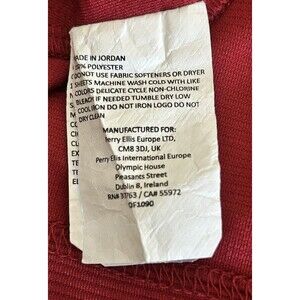 MADE IN JORDAN
100% POLYESTER
DO NOT USE FABRIC SOFTENERS OR DRYER
SHEETS MACHINE WASH COLD WITH LIKE
COLORS DELICATE CYCLE NON-CHLORINE
BLEACH IF NEEDED TUMBLE DRY LOW
COOL IRON DO NOT IRON LOGO DO NOT
DRY CLEAN
MANUFACTURED FOR:
Perry Ellis Europe LTD,
CM8 3DJ, UK
Perry Ellis International Europe
Olympic House
Pleasants Street
Dublin 8, Ireland
RN# 37763 / CA# 55972
0F1090